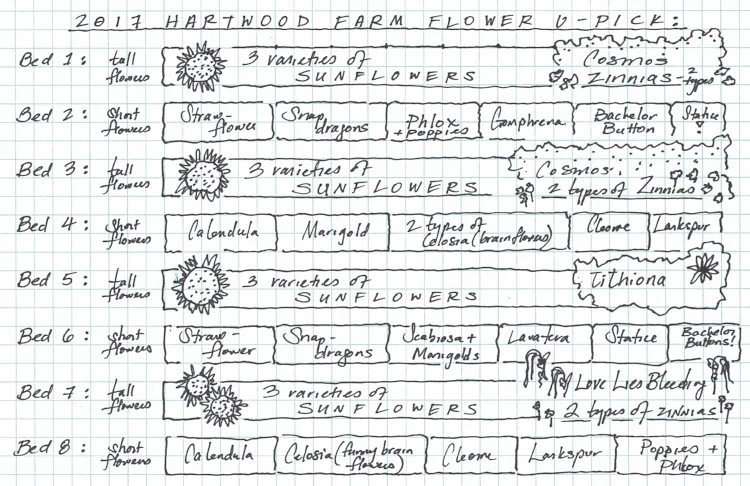 2017 HARTWOOD FARM FLOWER U-PICK:
Bed 1: tall flowers
3 varieties of
SUNFLOWERS
Cosmos
Zinnias - 2 types
Bed 2: short flowers
Straw-flower
Snap dragons
Phlox + poppies
Gomphrena
Bachelor Button
Statice
Bed 3: tall flowers
3 varieties of
SUNFLOWERS
Cosmos
2 types of Zinnias
Bed 4: short flowers
Calendula
Marigold
2 types of Celosia (brain flowers)
Cleome
Larkspur
Bed 5: tall flowers
3 varieties of
SUNFLOWERS
Tithiona
Bed 6: short flowers
Straw-flower
Snap-dragons
Scabiosa + Marigolds
Lavatera
Statice
Bachelor Buttons!
Bed 7: tall flowers
3 varieties of
SUNFLOWERS
Love Lies Bleeding
2 types of ZINNIAS
Bed 8: short flowers
Calendula
Celosia (funny brain flowers)
Cleome
Larkspur
Poppies + Phlox